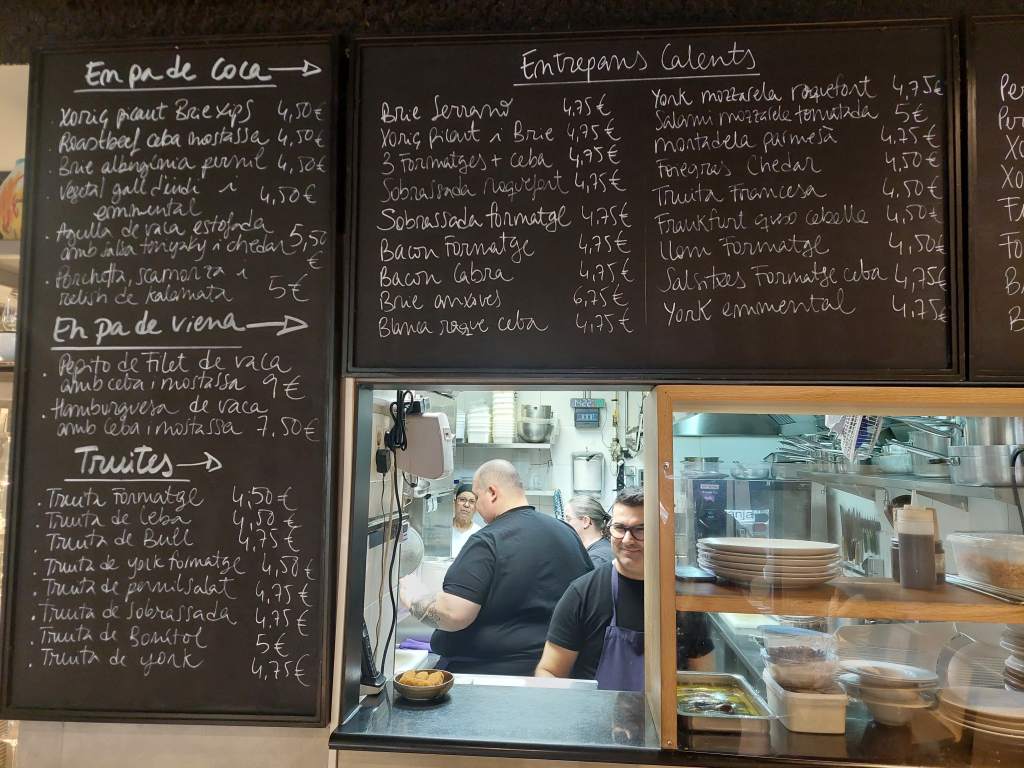 En pa de coca →
. Xoriç picant Brie xips 4,50€
. Roastbeef ceba mostassa 4,50€
. Brie albergínia pernil 4,50€
. Vegetal gall d'indi i 4,50€
emmental
. Agulla de vaca estofada 5,50
amb salsa tonyaky i chedar €
. Porchetta, scamorza i 5€
relish de kalamata
En pa de viena →
. Pepito de Filet de vaca
amb ceba i mostassa 9€
. Hamburguesa de vaca
amb ceba i mostassa 7.50€
Truites →
. Truita Formatge 4,50€
. Truita de Ceba 4,50€
. Truita de Bull 4.75€
. Truita de york formatge 4,50€
. Truita de pernil salat 4.75€
. Truita de Sobrassada 4.75€
. Truita de Bonítol 5€
. Truita de york 4,75€
Entrepans Calents
Brie Serrano 4,75€
Xoriç picant i Brie 4,75€
3 Formatges + ceba 4,75€
Sobrassada roquefort 4,75€
Sobrassada formatge 4.75€
Bacon Formatge 4,75€
Bacon Cabra 4,75€
Brie anxoves 6,75€
Blanca roque ceba 4,75€
York mozzarela roquefort 4,75€
Salami mozzarela torrada 5€
mortadela parmesà 4,75€
Foiegras Chedar 4,50€
Truita Francesa 4,50€
Frankfurt gruix cabello 4,50€
Llom Formatge 4,50€
Salsitxes Formatge ceba 4,75€
York emmental 4.75€
Pe
Per
Xo
Xo
Fo
B
B